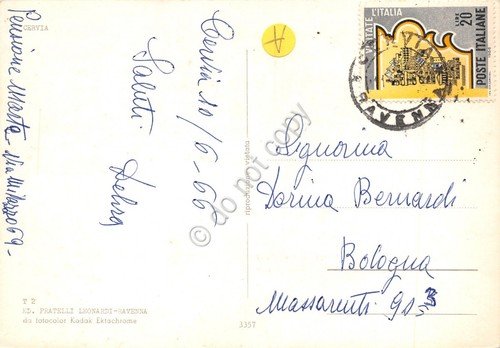 CERVIA
Pensione Marta - Via Milazzo 69 -
Cervia 10/6-66
Saluti
A
VISITATE L'ITALIA
LIRE 20
POSTE ITALIANE
CERVIA
RAVENNA
Signorina
Dorina Bernardi
Bologna
Massarenti 90
riproduzione vietata
do not copy
T 2
ED. FRATELLI LEONARDI - RAVENNA
da fotocolor Kodak Ektachrome
3357